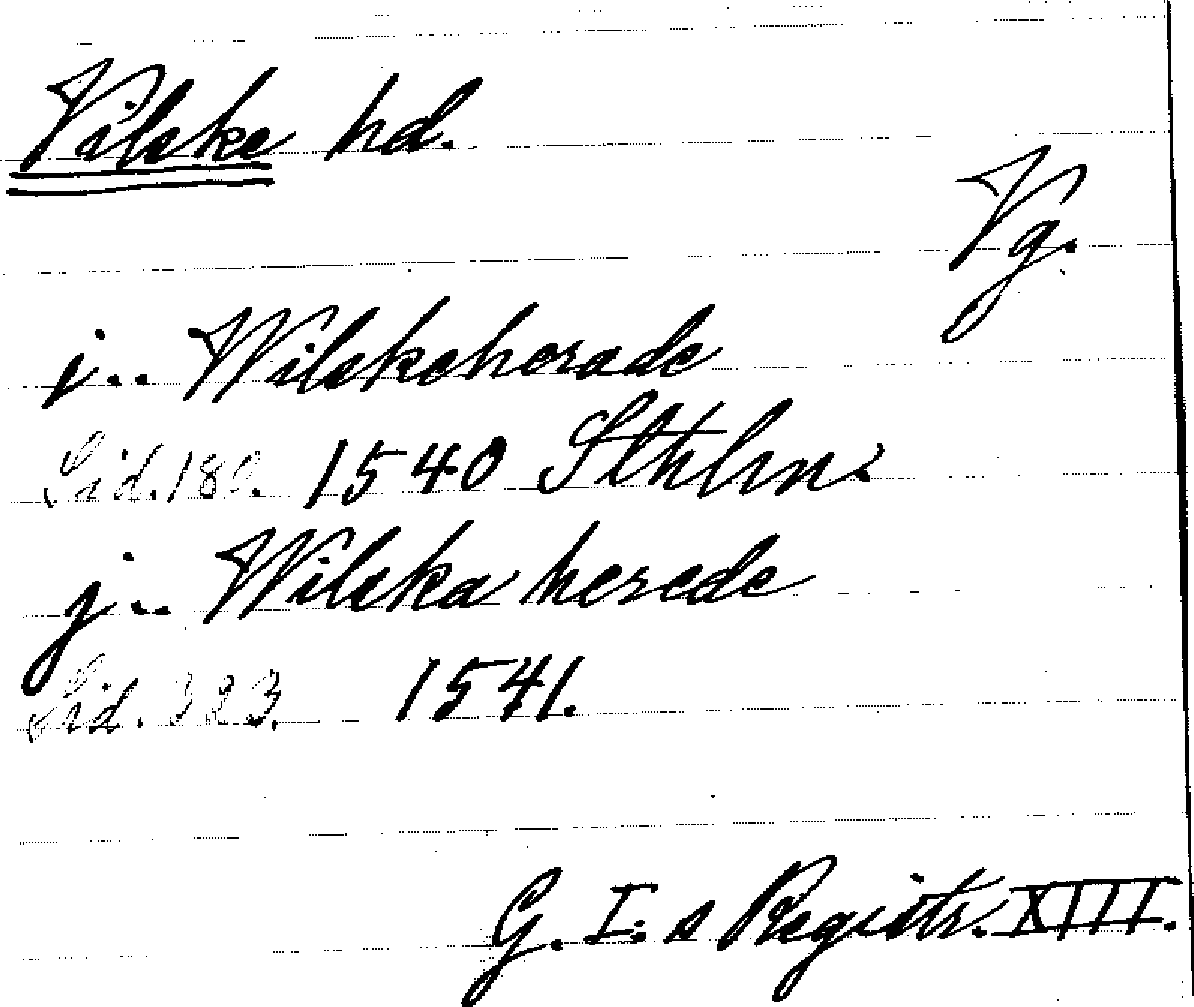 Vilske hd.
Vg.
j.. Wilskeherade
Sid. 180. 1540 Sthlm.
j.. Wilska herede
Sid. 323. 1541.
G. I:s Registr. XIII.